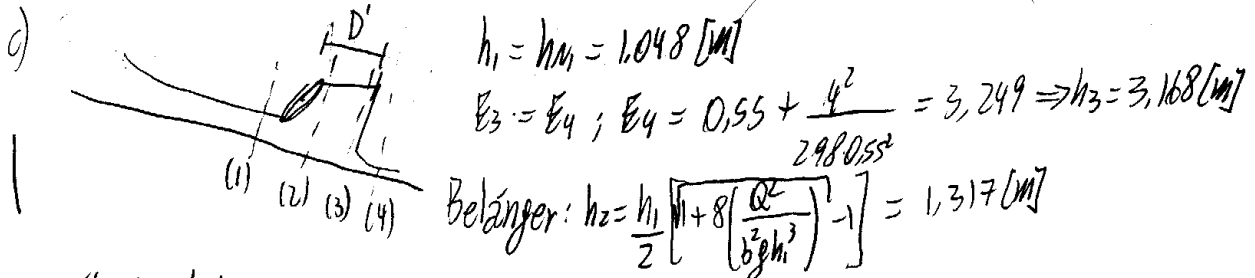 c)
D'
(1) (2) (3) (4)
h₁ = hₙ₁ = 1.048 [m]
E₃ = E₄ ; E₄ = 0,55 + 4² / 2·9.8·0,55² = 3,249 ⇒ h₃ = 3,168 [m]
Belánger: h₂ = h₁/2 [√(1 + 8(Q²/b²gh₁³)) - 1] = 1,317 [m]